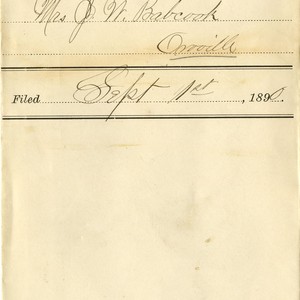 Mrs J. W. Babcook
Orville
Filed Sept 1st, 1890.